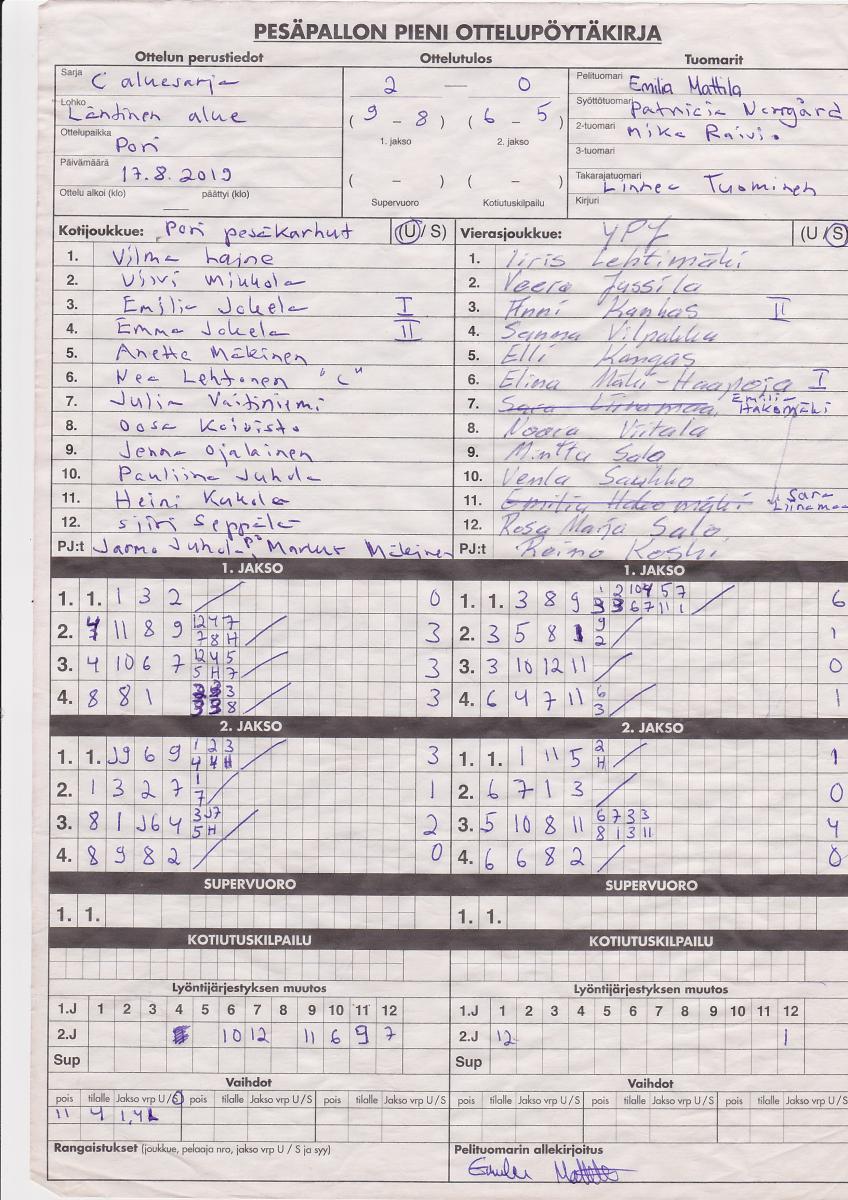 PESÄPALLON PIENI OTTELUPÖYTÄKIRJA
Ottelun perustiedot
Sarja C aluesarja
Lohko Läntinen alue
Ottelupaikka Pori
Päivämäärä 17.8.2019
Ottelu alkoi (klo) — päättyi (klo)
Ottelutulos
2 — 0
( 9 – 8 ) ( 6 – 5 )
1. jakso 2. jakso
( – ) ( – )
Supervuoro Kotiutuskilpailu
Tuomarit
Pelituomari Emilia Mattila
Syöttötuomari Patricia Norrgård
2-tuomari Mika Raivio
3-tuomari
Takarajatuomari Linnea Tuominen
Kirjuri
Kotijoukkue: Pori pesäkarhut (U/S)
1. Vilma Laine
2. Viivi Mikkola
3. Emilia Jokela I
4. Emma Jokela II
5. Anette Mäkinen
6. Nea Lehtonen "C"
7. Julia Vaitiniemi
8. Oosa Koivisto
9. Jenna Ojalainen
10. Pauliina Juhola
11. Heini Kukola
12. Siiri Seppälä
PJ:t Jarmo Juhola, Markut Mäkinen
Vierasjoukkue: YPJ (U/S)
1. Iiris Lehtimäki
2. Veera Jussila
3. Anni Kanhas II
4. Sanna Vilpakka
5. Elli Kangas
6. Elina Mäki-Haapoja I
7. Sara Liinamaa, Emilia Hakomäki
8. Noora Viitala
9. Minttu Salo
10. Venla Saukko
11. Emilia Hakomäki Sara Liinamaa
12. Rosa Marja Salo
PJ:t Reino Koski
1. JAKSO
1. 1. 1 3 2 0
2. 4 11 8 9 12 4 7 3
7 8 H
3. 4 10 6 7 12 4 5 3
5 H 7
4. 8 8 1 3 3 3 3
3 3 8
2. JAKSO
1. 1. J9 6 9 1 2 3 3
4 4 H
2. 1 3 2 7 1 1
7
3. 8 1 J6 4 3 J7 2
5 H
4. 8 9 8 2 0
SUPERVUORO
1. 1.
KOTIUTUSKILPAILU
Lyöntijärjestyksen muutos
1.J 1 2 3 4 5 6 7 8 9 10 11 12
2.J 10 12 11 6 9 7
Sup
Vaihdot
pois tilalle Jakso vrp U/S pois tilalle Jakso vrp U/S pois tilalle Jakso vrp U/S
11 4 1,4L
Rangaistukset (joukkue, pelaaja nro, jakso vrp U / S ja syy)
1. JAKSO
1. 1. 3 8 9 1 2 10 4 5 7 6
3 3 6 7 11 1
2. 3 5 8 1 9 1
2
3. 3 10 12 11 0
4. 6 4 7 11 6 1
3
2. JAKSO
1. 1. 1 11 5 2 1
H
2. 6 7 1 3 0
3. 5 10 8 11 6 7 3 3 4
8 1 3 11
4. 6 6 8 2 0
SUPERVUORO
1. 1.
KOTIUTUSKILPAILU
Lyöntijärjestyksen muutos
1.J 1 2 3 4 5 6 7 8 9 10 11 12
2.J 12 1
Sup
Vaihdot
pois tilalle Jakso vrp U/S pois tilalle Jakso vrp U/S pois tilalle Jakso vrp U/S
Pelituomarin allekirjoitus